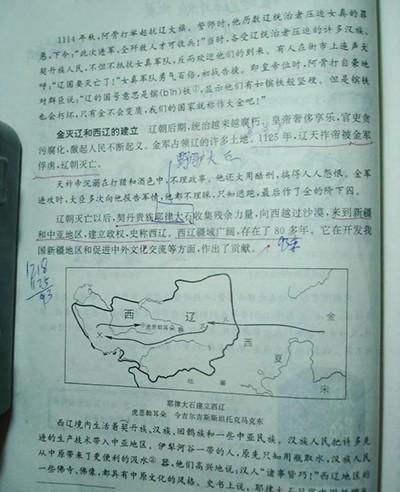 1114年秋,阿骨打举起抗辽大旗。誓师时,他历数辽统治者压迫女真的罪
恶,下令:"此次进军,全歼敌人才可收兵!"当时,备受辽统治者压迫的许多汉族、
契丹族人民,不但不抵抗女真军队,反而欢迎他们的到来。有人在街市上连声大
呼:"辽国要灭亡了!"女真军队勇气百倍,初战告捷。即皇帝位时,阿骨打自豪地
对群臣说:"辽的国号意思是镔(bīn)铁①,显示他们有如镔铁般坚硬。但是镔铁
也会朽坏,只有金不会变质,我们的国家就称作大金吧!"
金灭辽和西辽的建立 辽朝后期,统治越来越腐朽。皇帝奢侈享乐,官吏贪
污腐化,激起人民不断起义。金军占领辽的许多土地。1125年,辽天祚帝被金军
俘虏,辽朝灭亡。
天祚帝沉溺在打猎和酒色中,不理政事。他还支用酷刑,搞得人人怨恨。金军
进攻时,大臣多次向他报告军情,他都不理睬,只知逃跑,最后作了金的阶下囚。
辽朝灭亡以后,契丹贵族耶律大石收集残余力量,向西越过沙漠,来到新疆
和中亚地区,建立政权,史称西辽。西辽疆域广阔,存在了80多年。它在开发我
国新疆地区和促进中外文化交流等方面,作出了贡献。
1218
1125
93
西 辽
虎思斡耳朵
金
西
夏
吐 蕃
宋
耶律大石建立西辽
虎思斡耳朵 今吉尔吉斯斯坦托克马克东
西辽境内生活着契丹族、汉族、回鹘族和一些中亚民族。汉族人民把许多先
进的生产技术带入中亚地区。伊犁河谷一带的人,原先只知用瓶取水,汉族人民
从中原带来了更便利的汲水②器,他们高兴地说:汉人"诸事皆巧!"西辽地区的
一些佛寺、佛像,都具有中原文化的风格。史书上说,耶律大石